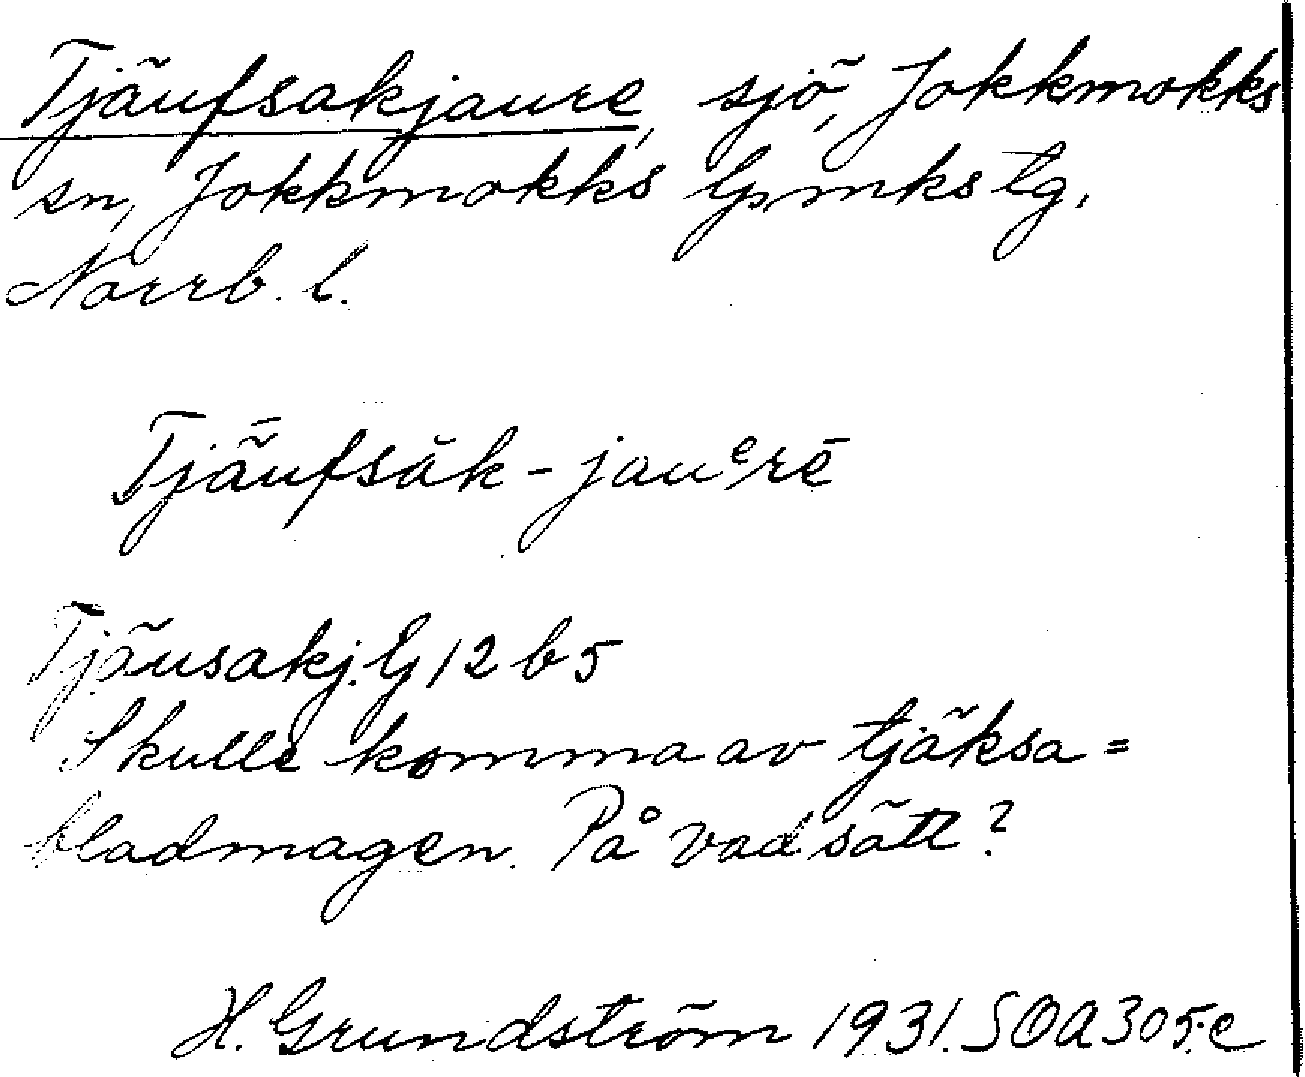 Tjäufsakjaure, sjö, Jokkmokks
sn, Jokkmokks lpmks tg.
Norrb. l.
Tjǟufsăk-jauᵉrē
Tjäusakj. G 12 b 5
Skulle komma av tjäksa =
bladmagen. På vad sätt?
H. Grundström 1931. SOA 305.e